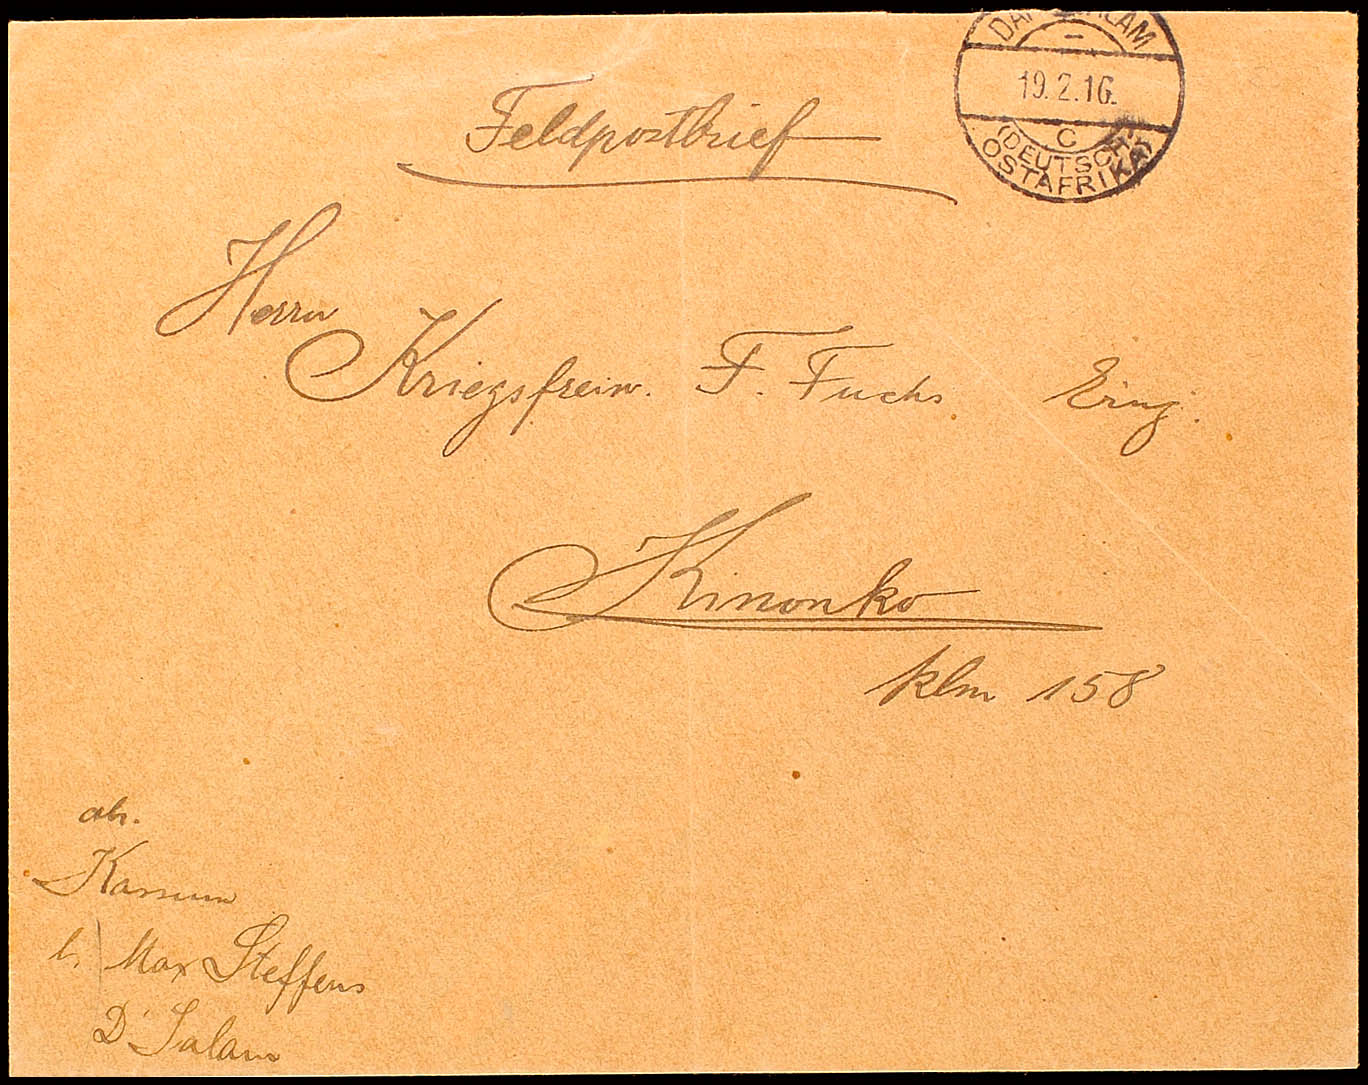 DARESSALAM
19.2.16.
C
(DEUTSCH-
OSTAFRIKA)
Feldpostbrief
Herrn
Kriegsfreiw. F. Fuchs
Kinonko
klm 158
abs.
b. Max Steffens
D'Salam